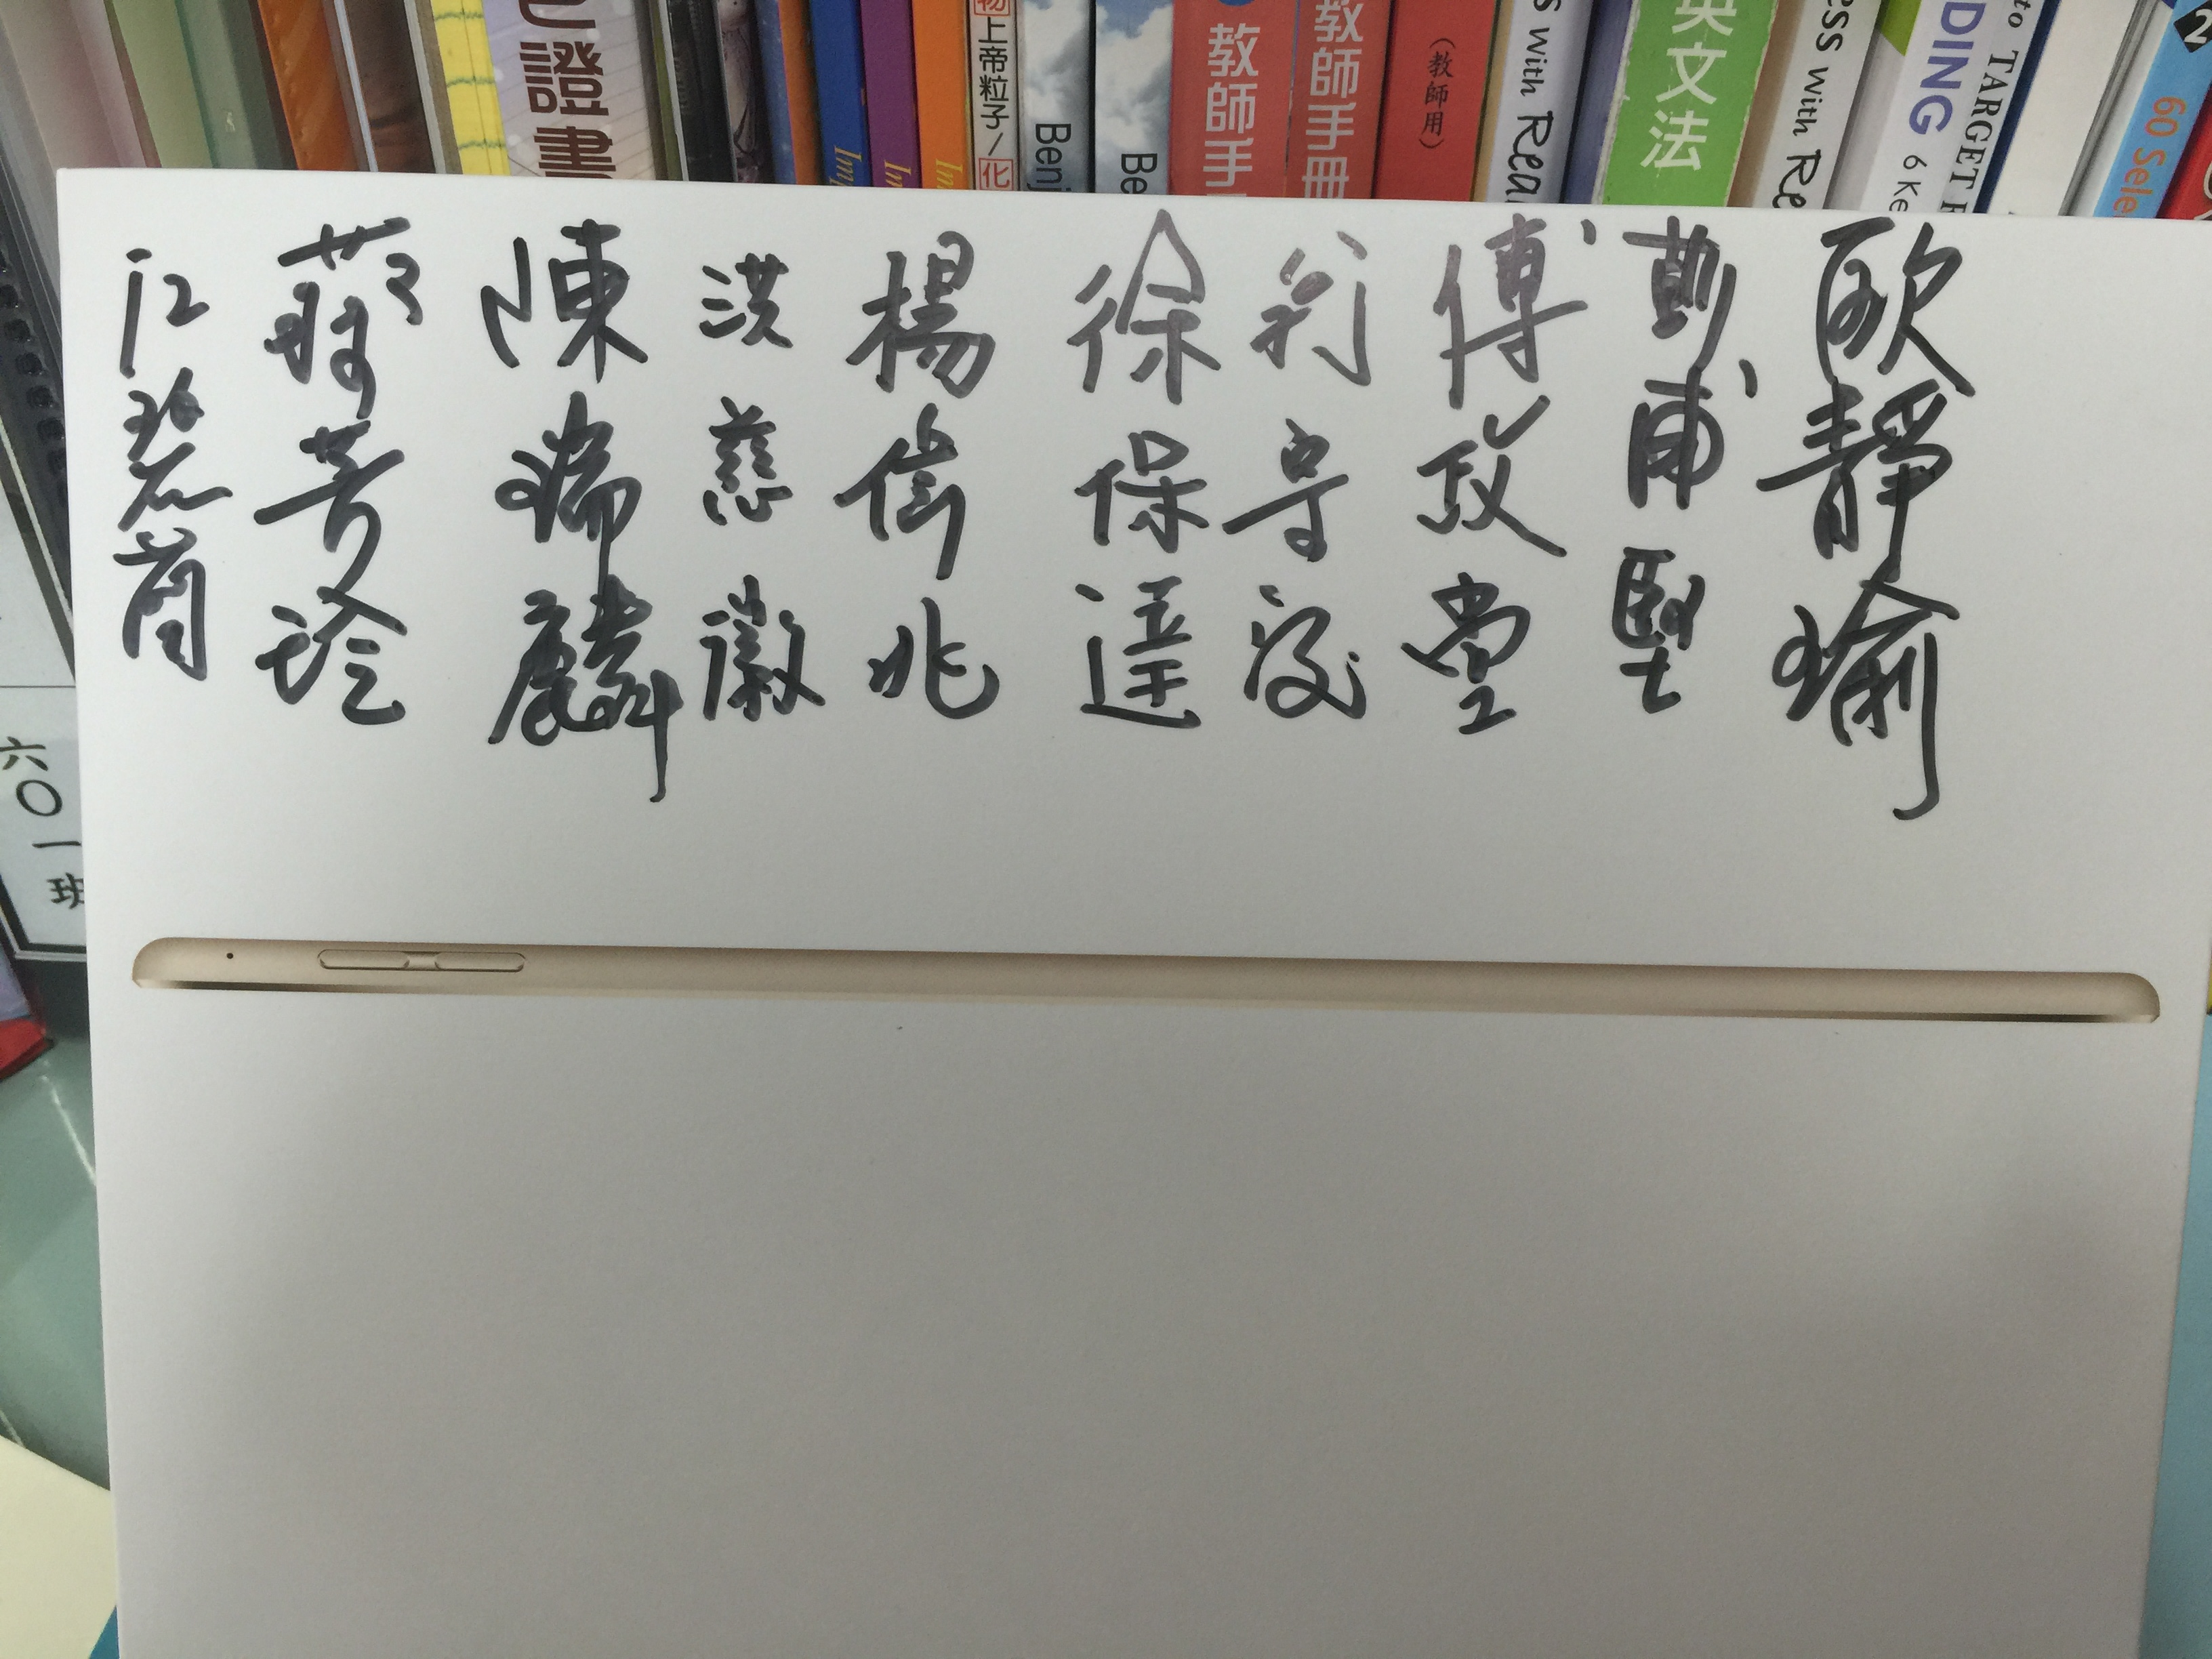 證書
上帝粒子/
化
Benj
Be
教師手
教師手冊
(教師用)
s with Rea
英文法
ess with Re
DING 6 Ke
to TARGET
60 Sele
2
歐靜瑜
彭甫堅
傅玫堂
徐保達
楊
兆
洪慈徽
陳瑞麟
蔡芳玲
江
六〇一班